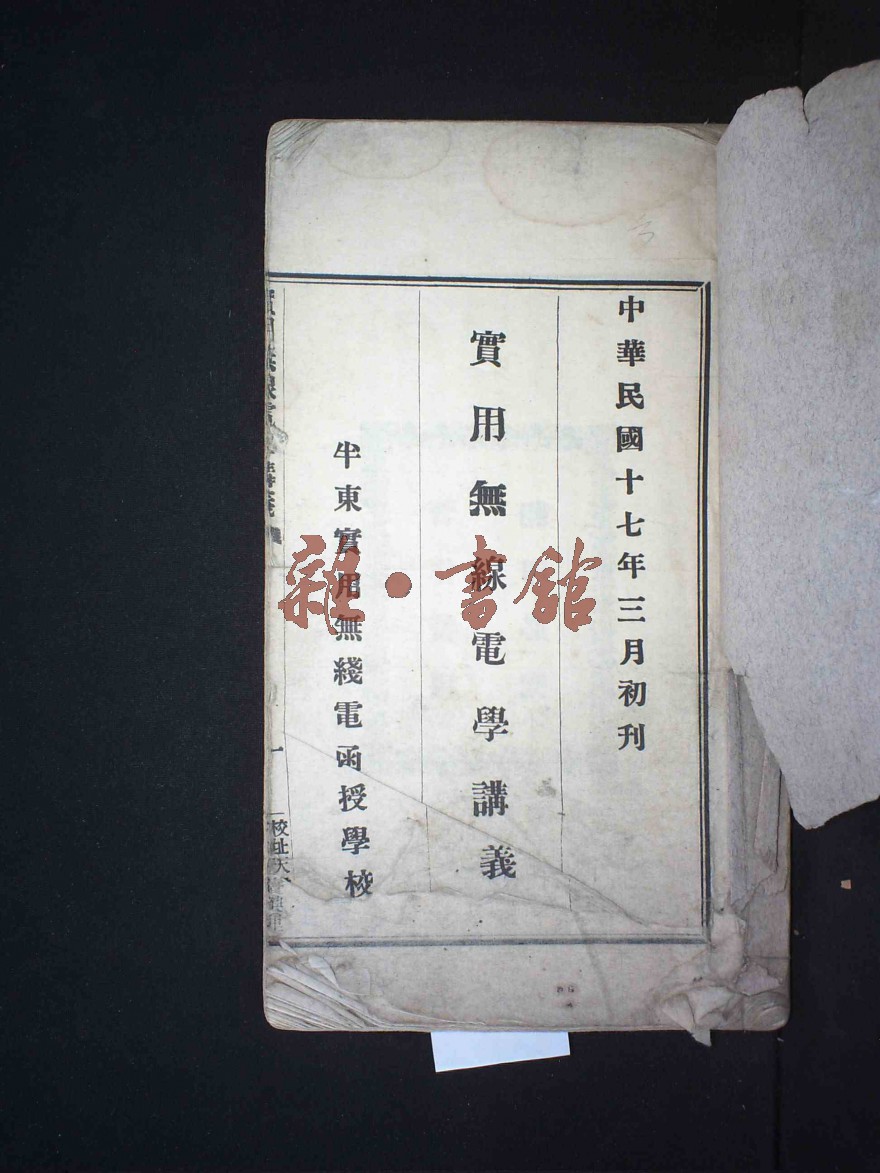 中華民國十七年三月初刊
實用無線電學講義
東實用無綫電函授學校
一
校址天
雜·書館